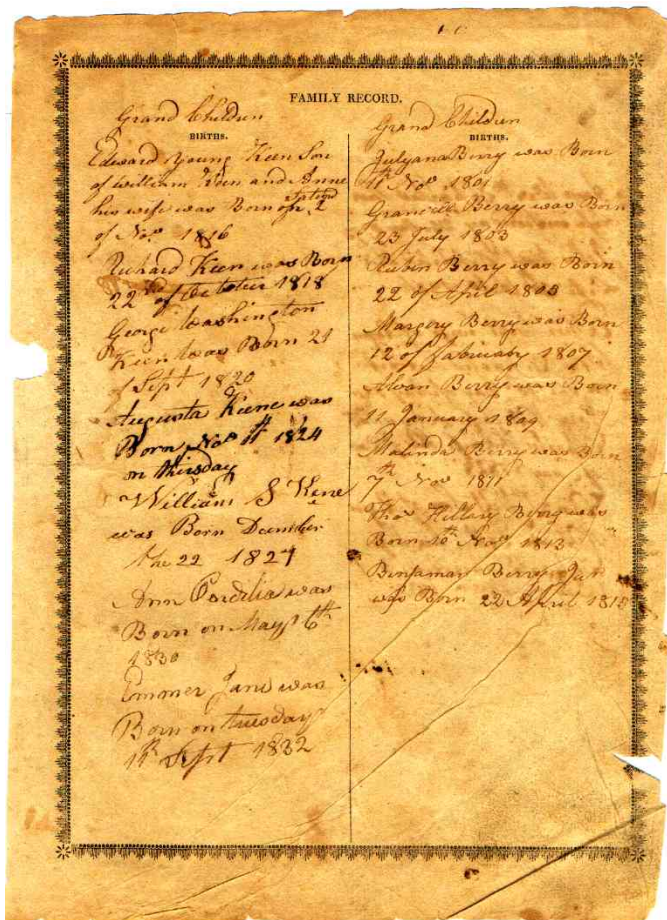 FAMILY RECORD.
Grand Children
BIRTHS.
Edward Young Keen Son
of William Keen and Anne
his wife was Born on 2
of Nov 1816
Richard Keen was Born
22nd of October 1818
George Washington
Keen was Born 21
of Sept 1820
Augusta Keene was
Born Nov 11th 1824
on thirsday
William S Kene
was Born December
the 22 1827
Ann Cordilia was
Born on May 6th
1830
Emmer Jane was
Born on tuesday
11th Sept 1832
Grand Children
BIRTHS.
Julyana Berry was Born
11th Nov 1801
Granvill Berry was Born
23 July 1803
Rubin Berry was Born
22 of April 1805
Margery Berry was Born
12 of 1807
Alvan Berry was Born
11 January 1809
Malinda Berry was Born
7th Nov 1811
Thos Hillery Berry was
Born 10th Nov 1813
Benjaman Berry Jun
was Born 22 April 1815